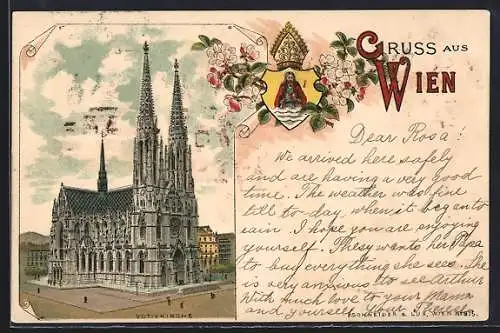 GRUSS AUS
WIEN
Dear Rosa!
We arrived here safely
and are having a very good
time. The weather was fine
till to-day, when it began to
rain. I hope you are enjoying
yourself. wants her Papa
to buy everything she sees. She
is very anxious to see Arthur
With much love to your Mama
and yourself. Your
VOTIVKIRCHE
SCHNEIDER & LUX, WIEN